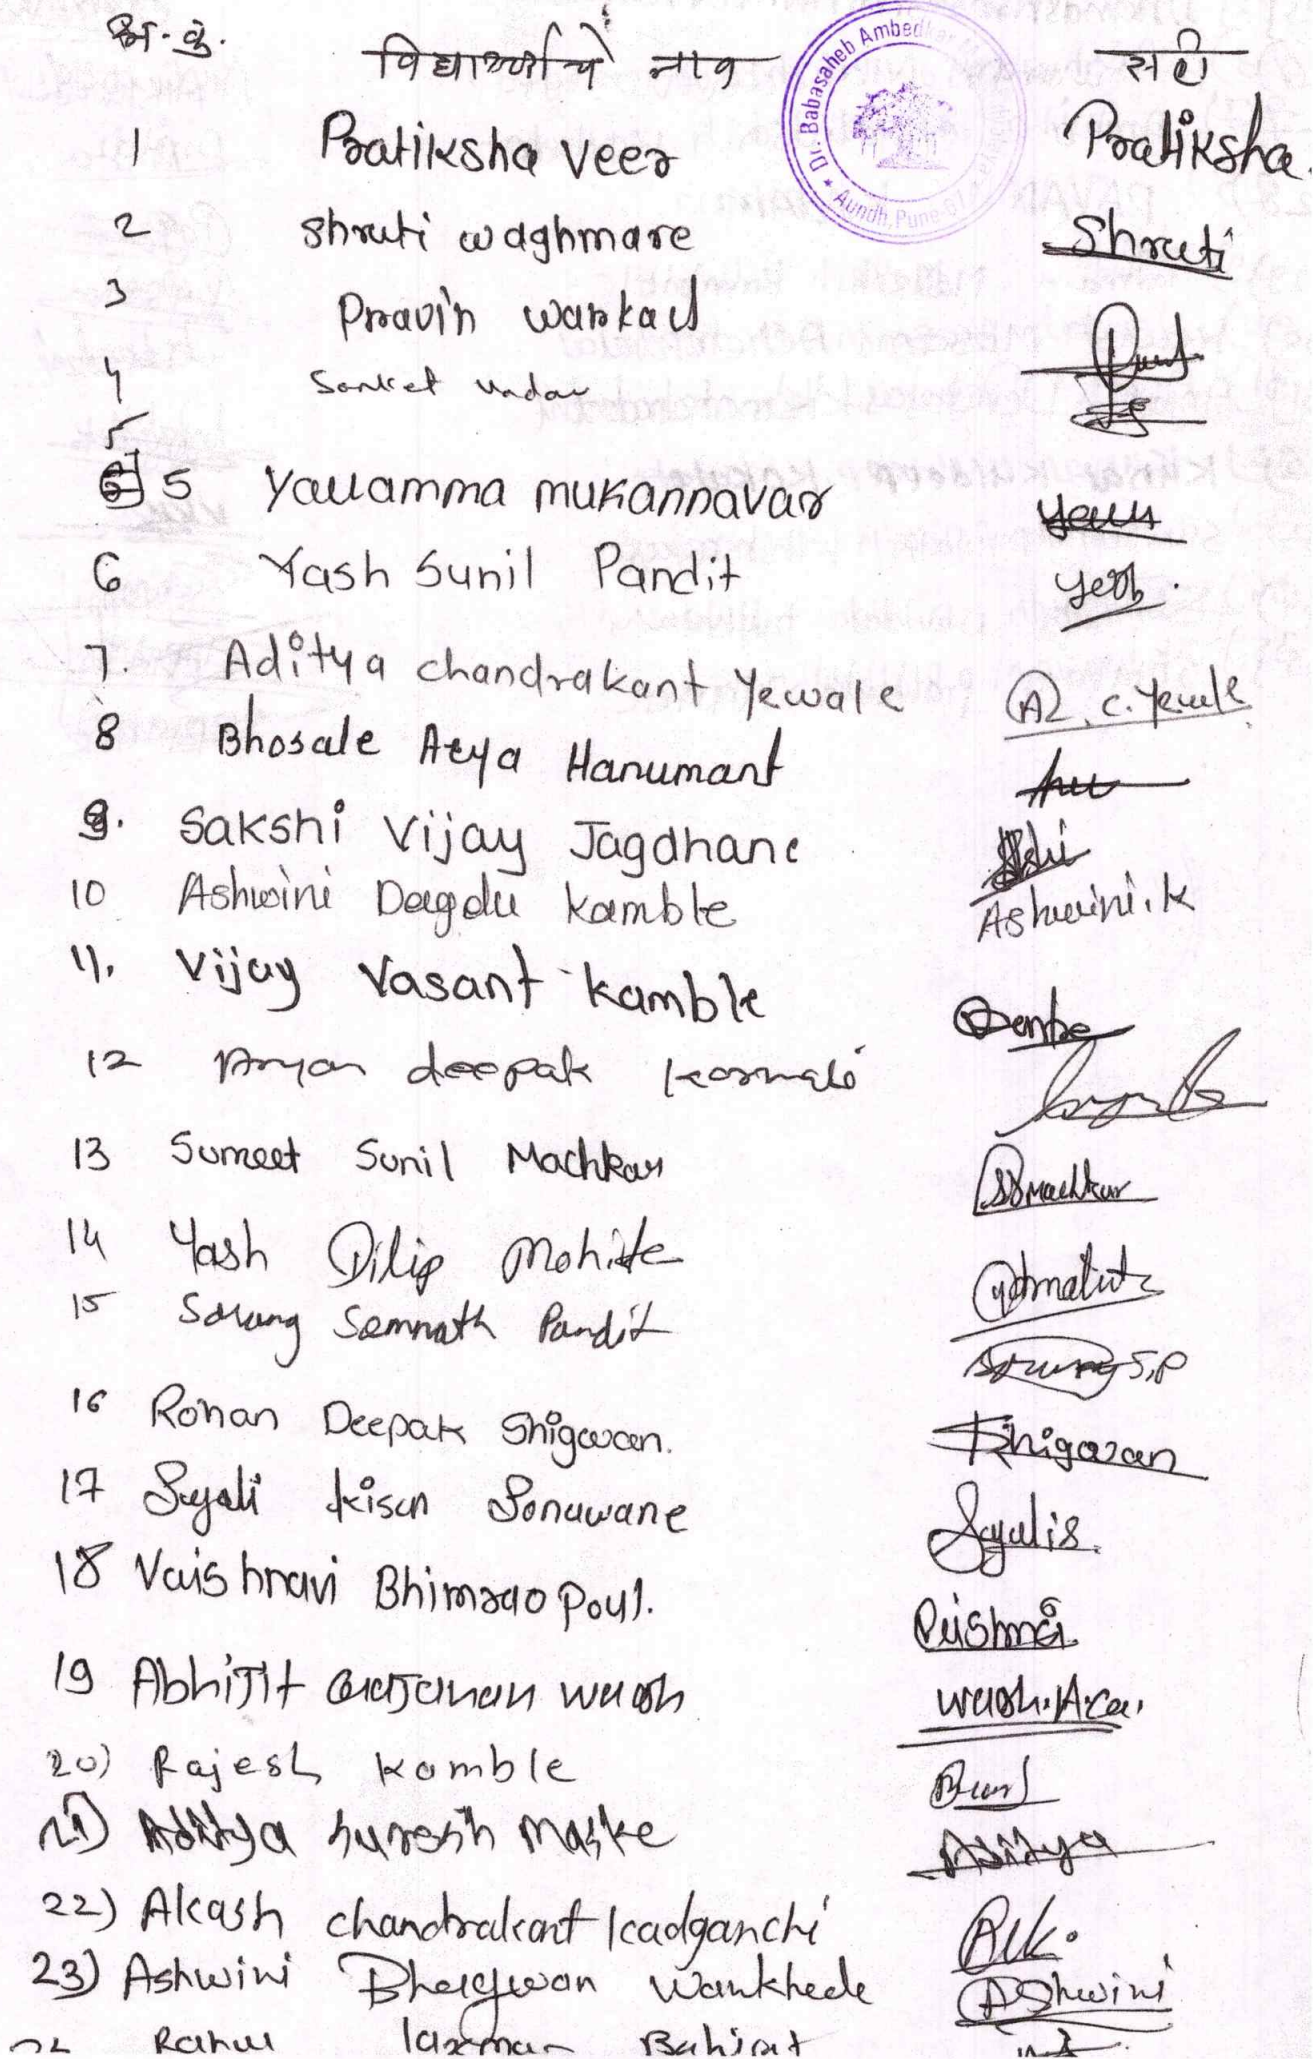 अ.क्र. विद्यार्थ्याचे नाव सही
Dr. Babasaheb Ambedkar
Aundh, Pune
1 Pratiksha Veer Pratiksha.
2 Shruti Waghmare Shruti
3 Pravin Wankad
4 Sanket
5
5 Yallamma mukannavar
6 Yash Sunil Pandit Yash.
7. Aditya Chandrakant Yewale A2. C. Yewale
8 Bhosale Arya Hanumant
9. Sakshi Vijay Jagdhane
10 Ashwini Dagdu Kamble Ashwini.K
11. Vijay Vasant Kamble
12 Aryan deepak
13 Sumeet Sunil Machkar SSMachkar
14 Yash Dilip Mohite
15 Sarang Somnath Pandit Sarang S.P
16 Rohan Deepak Shigwan. Shigwan
17 Sayali Kisan Sonawane Sayali S.
18 Vaishnavi Bhimrao Poul.
19 Abhijit Gajanan Wagh Wagh.A.G.
20) Rajesh Kamble
21) Aditya Suresh Maske Aditya
22) Akash Chandrakant Kadganchi
23) Ashwini Bhagwan Wankhede Ashwini
Rahul Laxman Bahirat